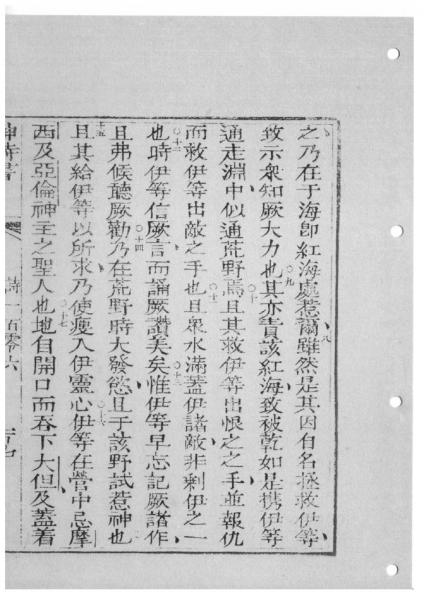 之乃在于海卽紅海處惹爾雖然是其因自名拯救伊等
○八
致示衆知厥大力也其亦責該紅海致被乾如是携伊等
○九
通走淵中似通荒野焉且其救伊等出恨之之手並報仇
○十
而救伊等出敵之手也且衆水滿蓋伊諸敵非剩伊之一
○十一
也時伊等信厥言而誦厥讚美矣惟伊等早忘記厥諸作
○十二
○十三
且弗候聽厥勸乃在荒野時大發慾且于該野試惹神也
○十四
且其給伊等以所求乃使瘦入伊靈心伊等在營中忌摩
○十五
○十六
西及亞倫神主之聖人也地自開口而吞下大但及蓋着
○十七
神詩書
詩一百零六